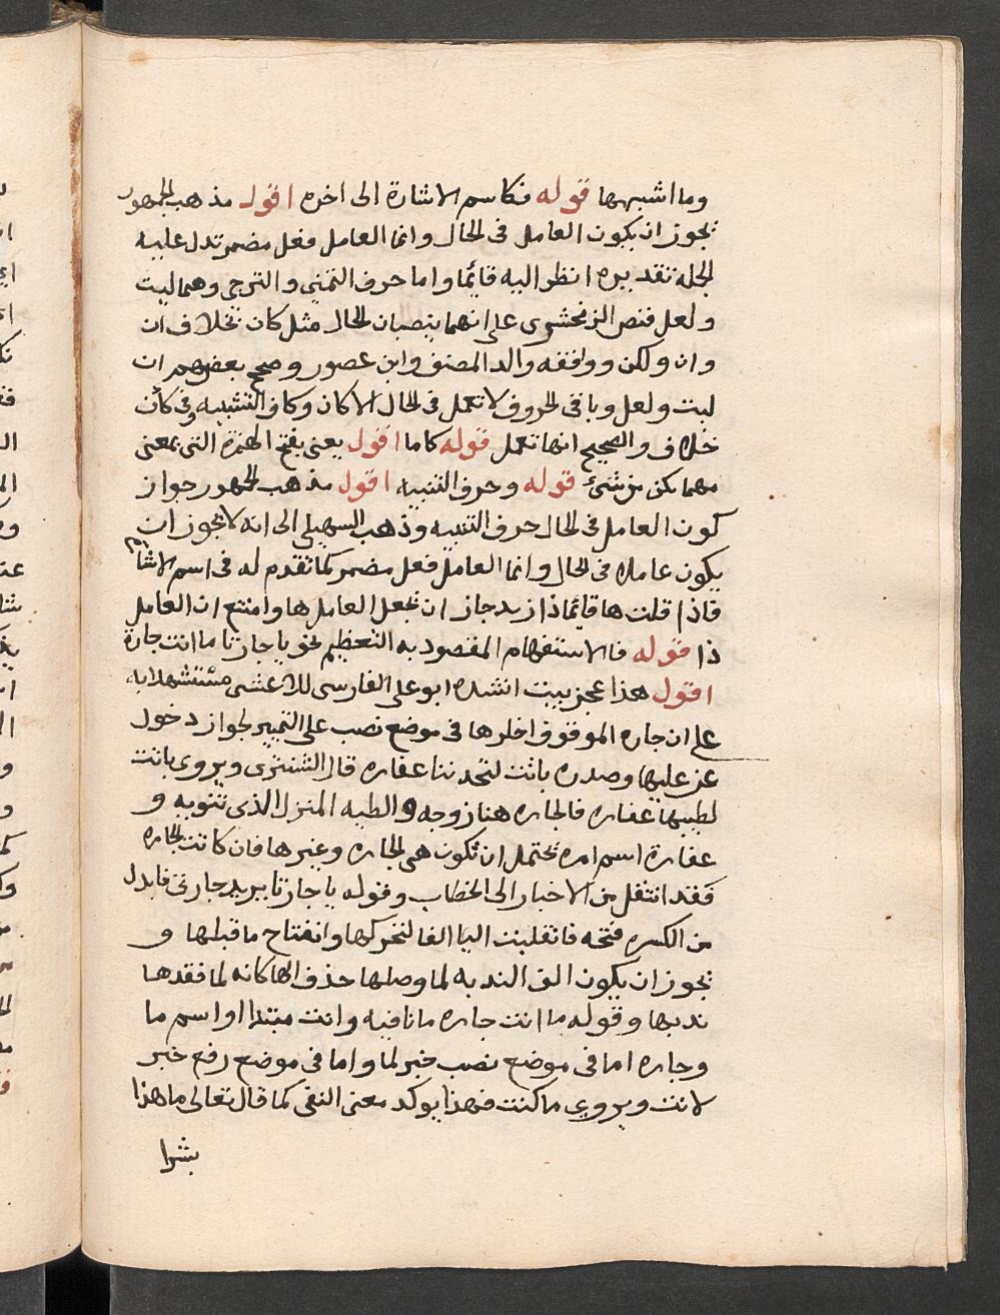 وما اشبهها قوله فكاسم الاشارة الى اخره اقول مذهب الجمهور
تجوز ان يكون العامل فى الحال وانما العامل فعل مضمر تدل عليه
الجملة تقديره انظر اليه قائما واما حرف التمنى والترجى وهما ليت
ولعل فنص الزمخشرى على انهما ينصبان الحال مثل كان بخلاف ان
وان ولكن ووافقه والد المصنف وابن عصور وصحح بعضهم ان
ليت ولعل وباقى الحروف لا تعمل فى الحال الا كان وكاف التشبيه وفى كان
خلاف والصحيح انها تعمل قوله كاما اقول يعنى بفتح الهمزة التى بمعنى
مهما يكن من شئ قوله وحرف التنبيه اقول مذهب الجمهور جواز
كون العامل فى الحال حرف التنبيه وذهب السهيلى الى انه لا يجوز ان
يكون عاملا فى الحال وانما العامل فعل مضمر كما تقدم له فى اسم الاشارة
فاذا قلت ها قائما ذا زيد جاز ان تجعل العامل ها وامتنع ان العامل
ذا قوله فالاستفهام المقصود به التعظيم نحو يا جارتا ما انت جارة
اقول هذا عجز بيت انشده ابو على الفارسى للاعشى مستشهدا به
على ان جاره الموقوف اخرها فى موضع نصب على التمييز لجواز دخول
عن عليها وصدره بانت لتحزننا عفاره قال الشنتمرى ويروى بانت
لطيتها عفاره فالجاره هنا زوجه والطيه المنزل الذى تنويه و
عفارة اسم امره تحتمل ان تكون هى الجاره وغيرها فان كانت الجاره
فقد انتقل من الاخبار الى الخطاب وقوله يا جارتا يريد جارتى فابدل
من الكسره فتحه فانقلبت اليا الفا لتحركها وانفتاح ما قبلها و
تجوز ان يكون الف الندبه لما وصلها حذف الها كانه لما فقدها
ندبها وقوله ما انت جاره ما نافيه وانت مبتدا او اسم ما
وجاره اما فى موضع نصب خبر لما واما فى موضع رفع خبر
لانت ويروى ما كنت فهذا يوكد معنى النفى كما قال تعالى ما هذا
بشرا